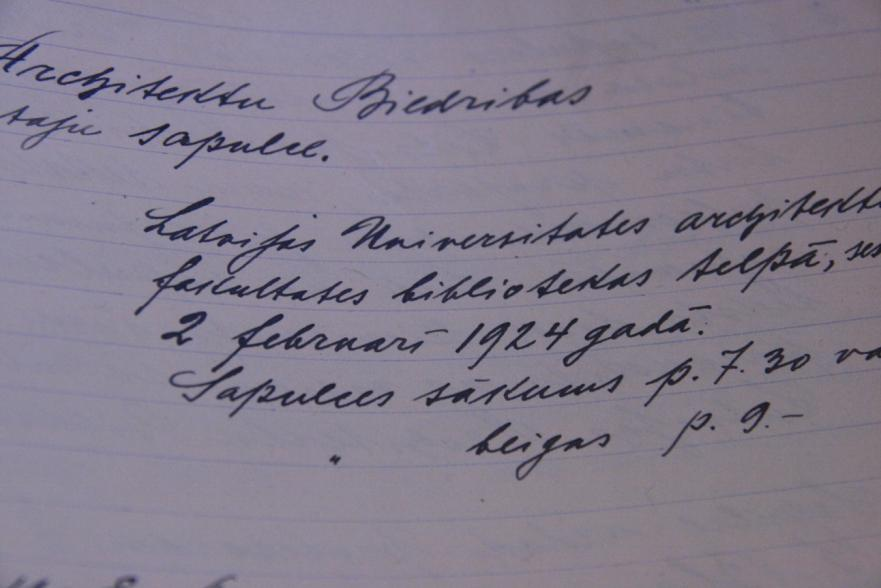 Architektu Biedribas
taju sapulce.
Latvijas Universitates architektu
fakultates bibliotekas telpā, ses
2 februarī 1924 gadā.
Sapulces sākums p. 7. 30 va
" beigas p. 9.–